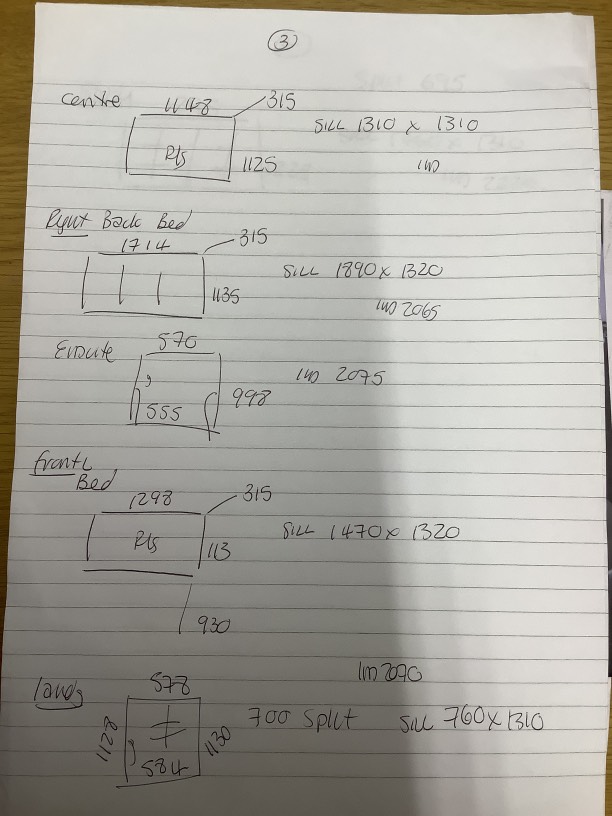 3
Centre 1148 315 SILL 1310 x 1310
Rts 1125 IID
Right Back Bed
1714 315 SILL 1890 x 1320
1135 IID 2065
Ensuite 570
IID 2075
555 998
front L
Bed
1298 315
Rts 113 SILL 1470 x 1320
930
IID 2070
578
700 Split SILL 760 x 1310
1128 1130
584